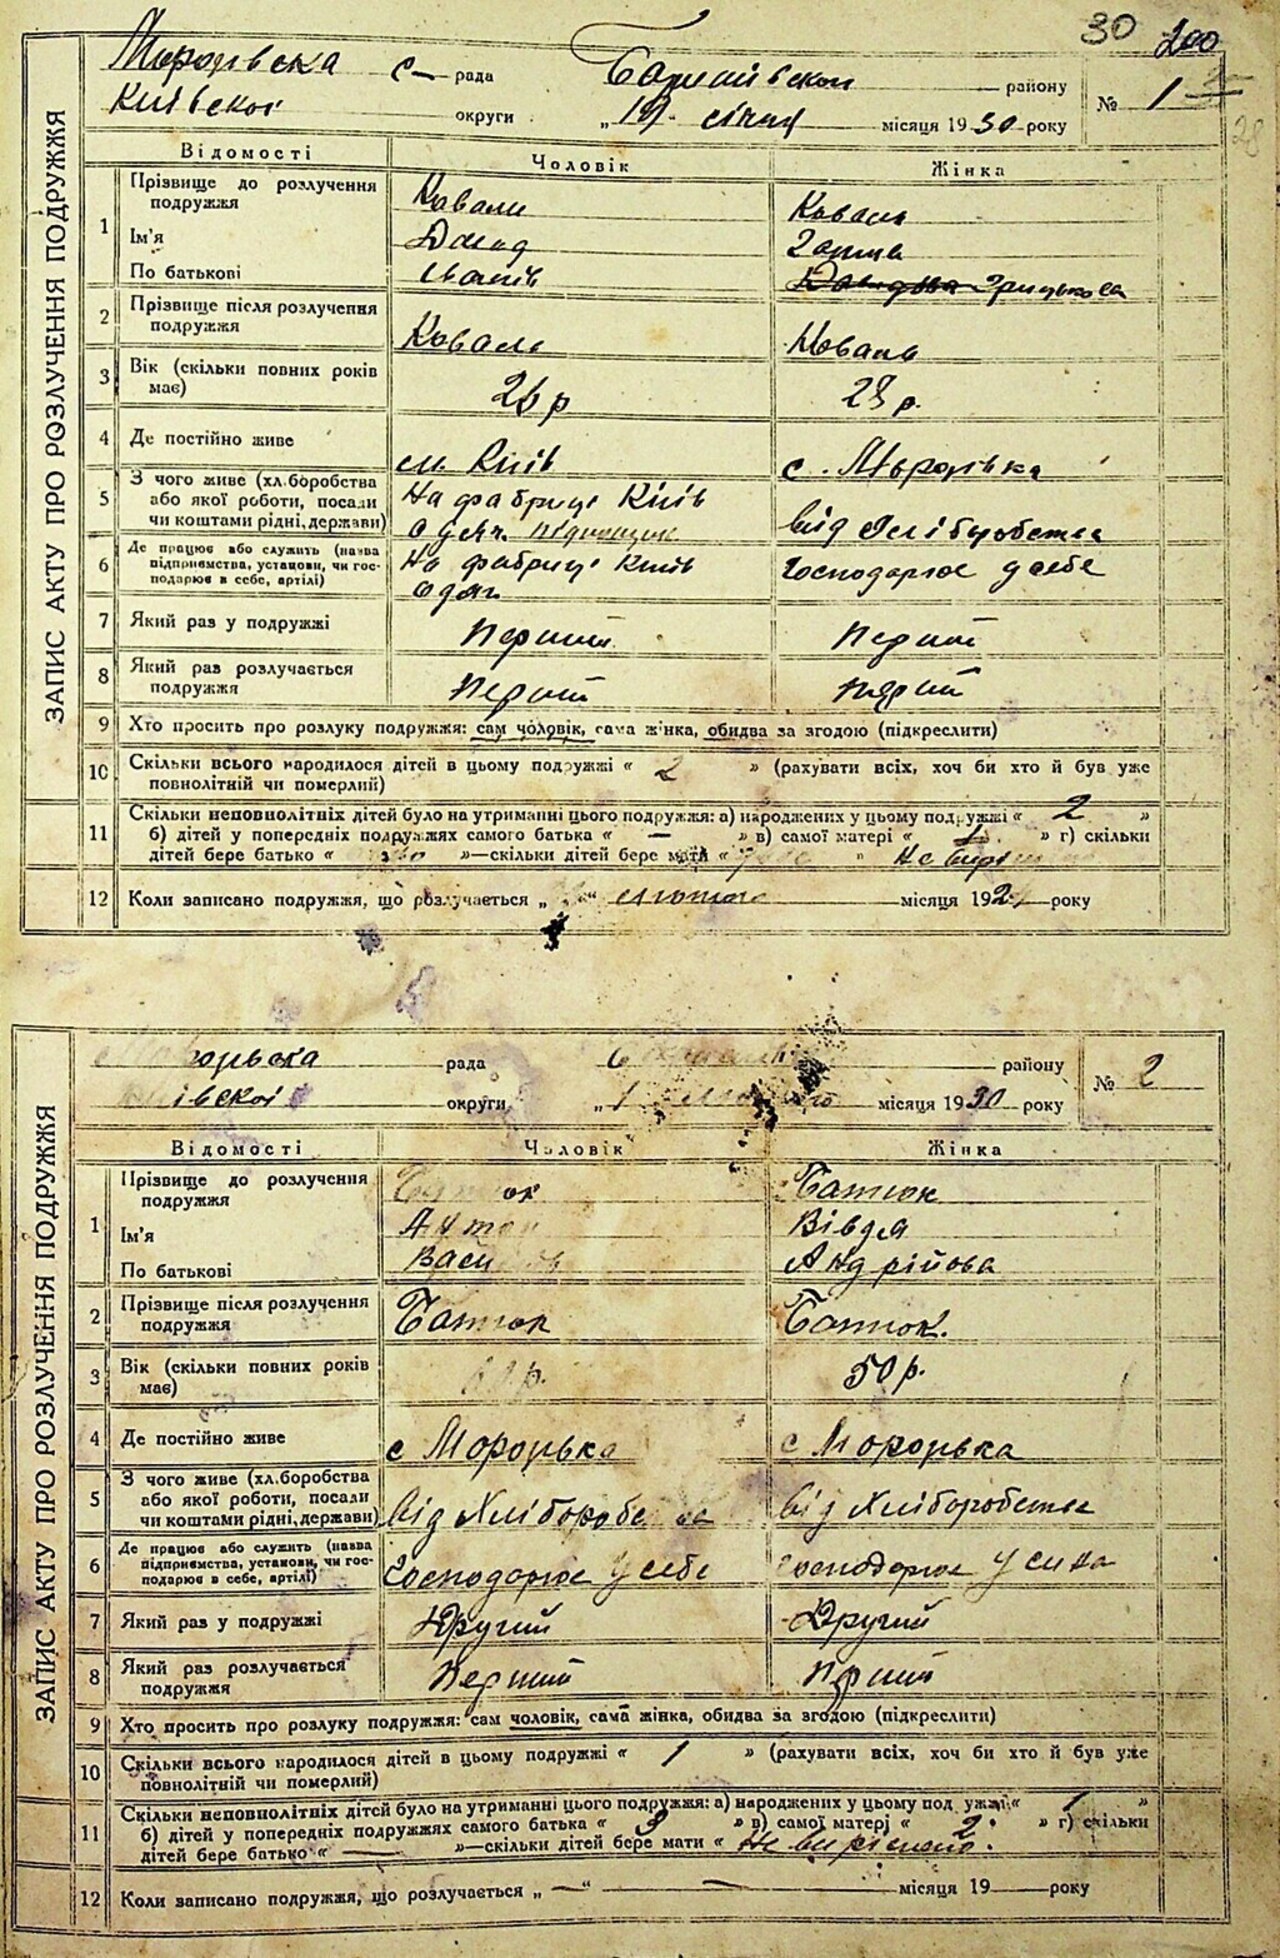 30 200
с рада Баришівської району № 1
Київської округи „19" січня місяця 1930 року
28
ЗАПИС АКТУ ПРО РОЗЛУЧЕННЯ ПОДРУЖЖЯ
Відомості Чоловік Жінка
1 Прізвище до розлучення подружжя Коваль Коваль
Ім'я
По батькові Іванів Грицькова
2 Прізвище після розлучення подружжя Коваль Коваль
3 Вік (скільки повних років має) 26 р 28 р.
4 Де постійно живе м. Київ с.
5 З чого живе (хл.боробства або якої роботи, посади чи коштами рідні, держави) На фабриці Київ від Хліборобства
6 Де працює або служить (назва підприємства, установи, чи господарює в себе, артілі) На фабриці Київ одяг Господарює у себе
7 Який раз у подружжі Перший Перший
8 Який раз розлучається подружжя Перший Перший
9 Хто просить про розлуку подружжя: сам чоловік, сама жінка, обидва за згодою (підкреслити)
10 Скільки всього народилося дітей в цьому подружжі « 2 » (рахувати всіх, хоч би хто й був уже
повнолітній чи померлий)
11 Скільки неповнолітніх дітей було на утриманні цього подружжя: а) народжених у цьому подружжі « 2 »
б) дітей у попередніх подружжях самого батька « — » в) самої матері « » г) скільки
дітей бере батько « »—скільки дітей бере мати « »
12 Коли записано подружжя, що розлучається „ " лютого місяця 192 року
рада району № 2
округи „1 місяця 1930 року
ЗАПИС АКТУ ПРО РОЗЛУЧЕННЯ ПОДРУЖЖЯ
Відомості Чоловік Жінка
1 Прізвище до розлучення подружжя Батюк
Ім'я Вівдя
По батькові Андрійова
2 Прізвище після розлучення подружжя Батюк Батюк.
3 Вік (скільки повних років має) р. 50 р.
4 Де постійно живе с Мороцька с Мороцька
5 З чого живе (хл.боробства або якої роботи, посади чи коштами рідні, держави) від Хліборобства від Хліборобства
6 Де працює або служить (назва підприємства, установи, чи господарює в себе, артілі) Господарює у себе Господарює у сина
7 Який раз у подружжі Другий Другий
8 Який раз розлучається подружжя Перший Прший
9 Хто просить про розлуку подружжя: сам чоловік, сама жінка, обидва за згодою (підкреслити)
10 Скільки всього народилося дітей в цьому подружжі « 1 » (рахувати всіх, хоч би хто й був уже
повнолітній чи померлий)
11 Скільки неповнолітніх дітей було на утриманні цього подружжя: а) народжених у цьому подружжі « 1 »
б) дітей у попередніх подружжях самого батька « 3 » в) самої матері « 2. » г) скільки
дітей бере батько « — »—скільки дітей бере мати « Не вирішено.
12 Коли записано подружжя, що розлучається „ — " — місяця 19 року